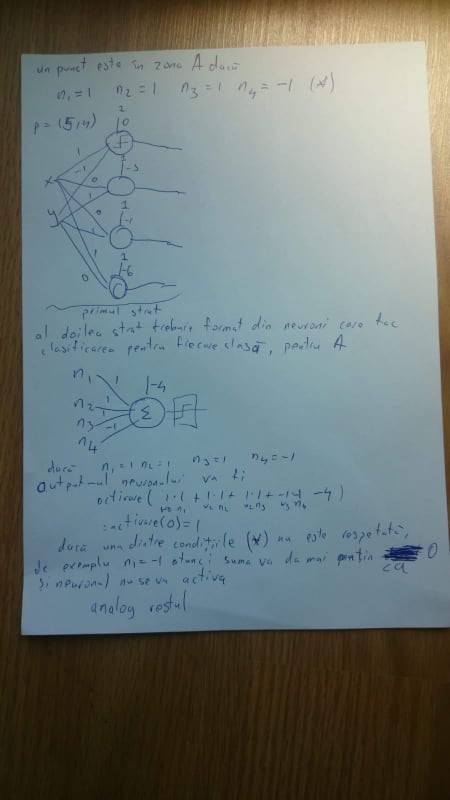 un punct este în zona A dacă
n1 = 1 n2 = 1 n3 = 1 n4 = -1 (*)
p = (5,4)
1
0
1
-1
x
0
-3
1
1
y
0
-1
1
1
0
-6
primul strat
al doilea strat trebuie format din neuroni care fac
clasificarea pentru fiecare clasă, pentru A
n1 1
-4
n2 1
n3 1
Σ
n4 -1
dacă n1=1 n2=1 n3=1 n4=-1
Output-ul neuronului va fi
activare( 1·1 + 1·1 + 1·1 + -1·-1 -4 )
n1 w2 n2 w2 n3 w3 n4
= activare(0) = 1
dacă una dintre condițiile (*) nu este respetată,
de exemplu n1 = -1 atunci suma va da mai puțin ca 0
și neuronul nu se va activa
analog restul